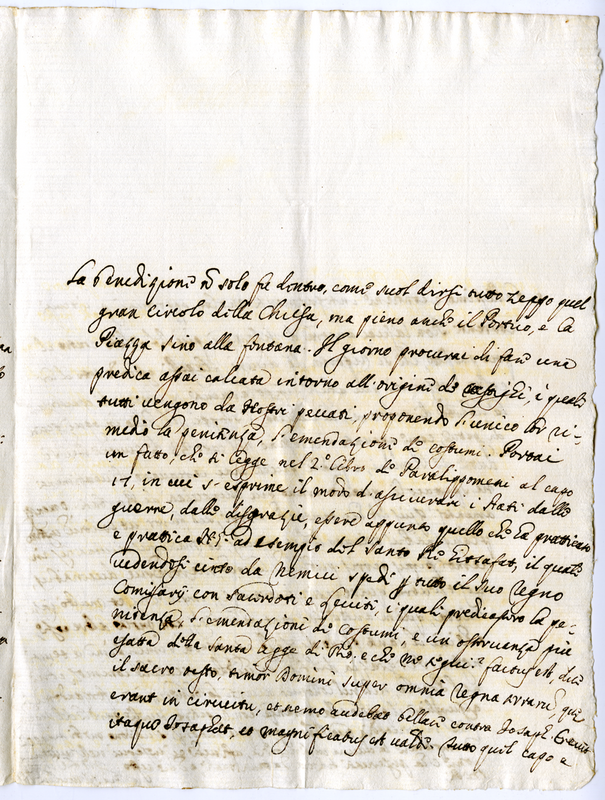 La benedizione ñ solo fù dentro, come suol dirsi tutto zeppo quel
gran circolo della Chiesa, ma pieno anche il Portico, e la
Piazza sino alla fontana. Il giorno procurai di fare una
predica assai calcata intorno all'origine de i quali
tutti vengono da Nostri peccati, proponendo l'unico ri-
medio la penitenza, l'emendazione de costumi. Portai
un fatto, che si legge nel 2.º libro de Paralippomeni al capo
17, in cui s'esprime il modo d'assicurare i stati dalle
guerre, dalle disgrazie, essere appunto quello che la praticato
e prattica ad esempio del Santo Rè Giosafat, il quale
vedendosi cinto da Nemici spedì p tutto il suo regno
Comissarij con sacerdoti e leviti, i quali predicassero la pe-
nitenza, l'emendazione de costumi, e un osservanza più
esatta della santa legge di e che ne seguì? factus est, dice
il sacro testo, timor Domini super omnia regna terrarũ, quę
erant in circuitu, et nemo audebat bellare contra Josaph. Crevit
itaque Josaphat, et magnificatus est valde. Tutto quel capo e